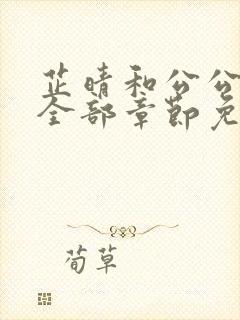 芷晴和公公
全部章节免
荀草